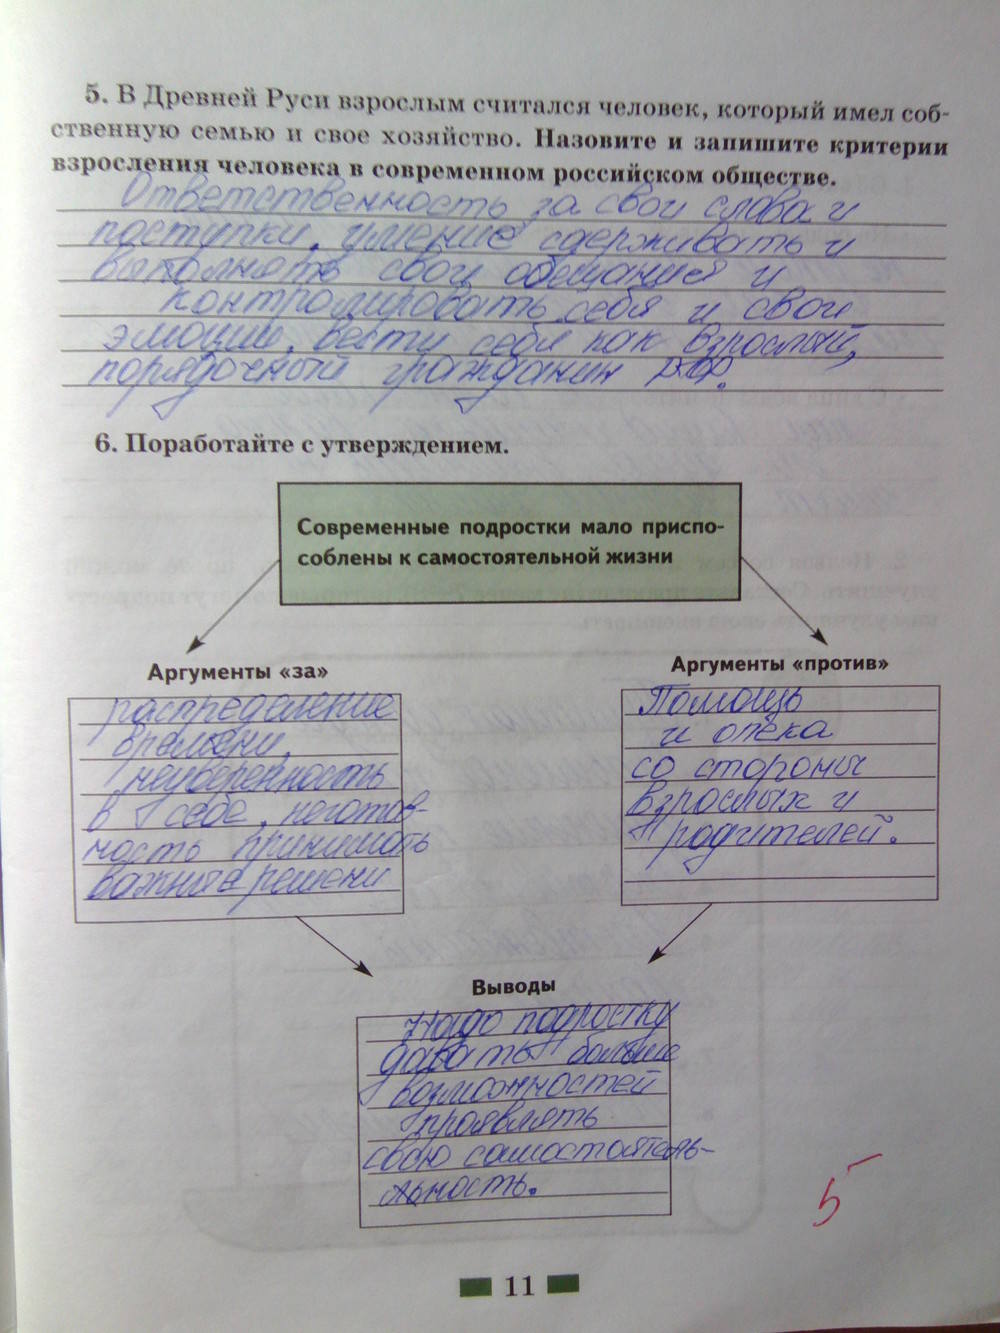 5. В Древней Руси взрослым считался человек, который имел соб-
ственную семью и свое хозяйство. Назовите и запишите критерии
взросления человека в современном российском обществе.
Ответственность за свои слова и
поступки, умение сдерживать и
выполнять свои обещания и
контролировать себя и свои
эмоции, вести себя как взрослый,
порядочный гражданин РФ.
6. Поработайте с утверждением.
Современные подростки мало приспо-
соблены к самостоятельной жизни
Аргументы «за»
распределение
времени,
неуверенность
в себе, неготов-
ность принимать
важные решени
Аргументы «против»
Помощь
и опека
со стороны
взрослых и
родителей.
Выводы
Надо подростку
давать больше
возможностей
проявлять
свою самостоятель-
льность.
5
11